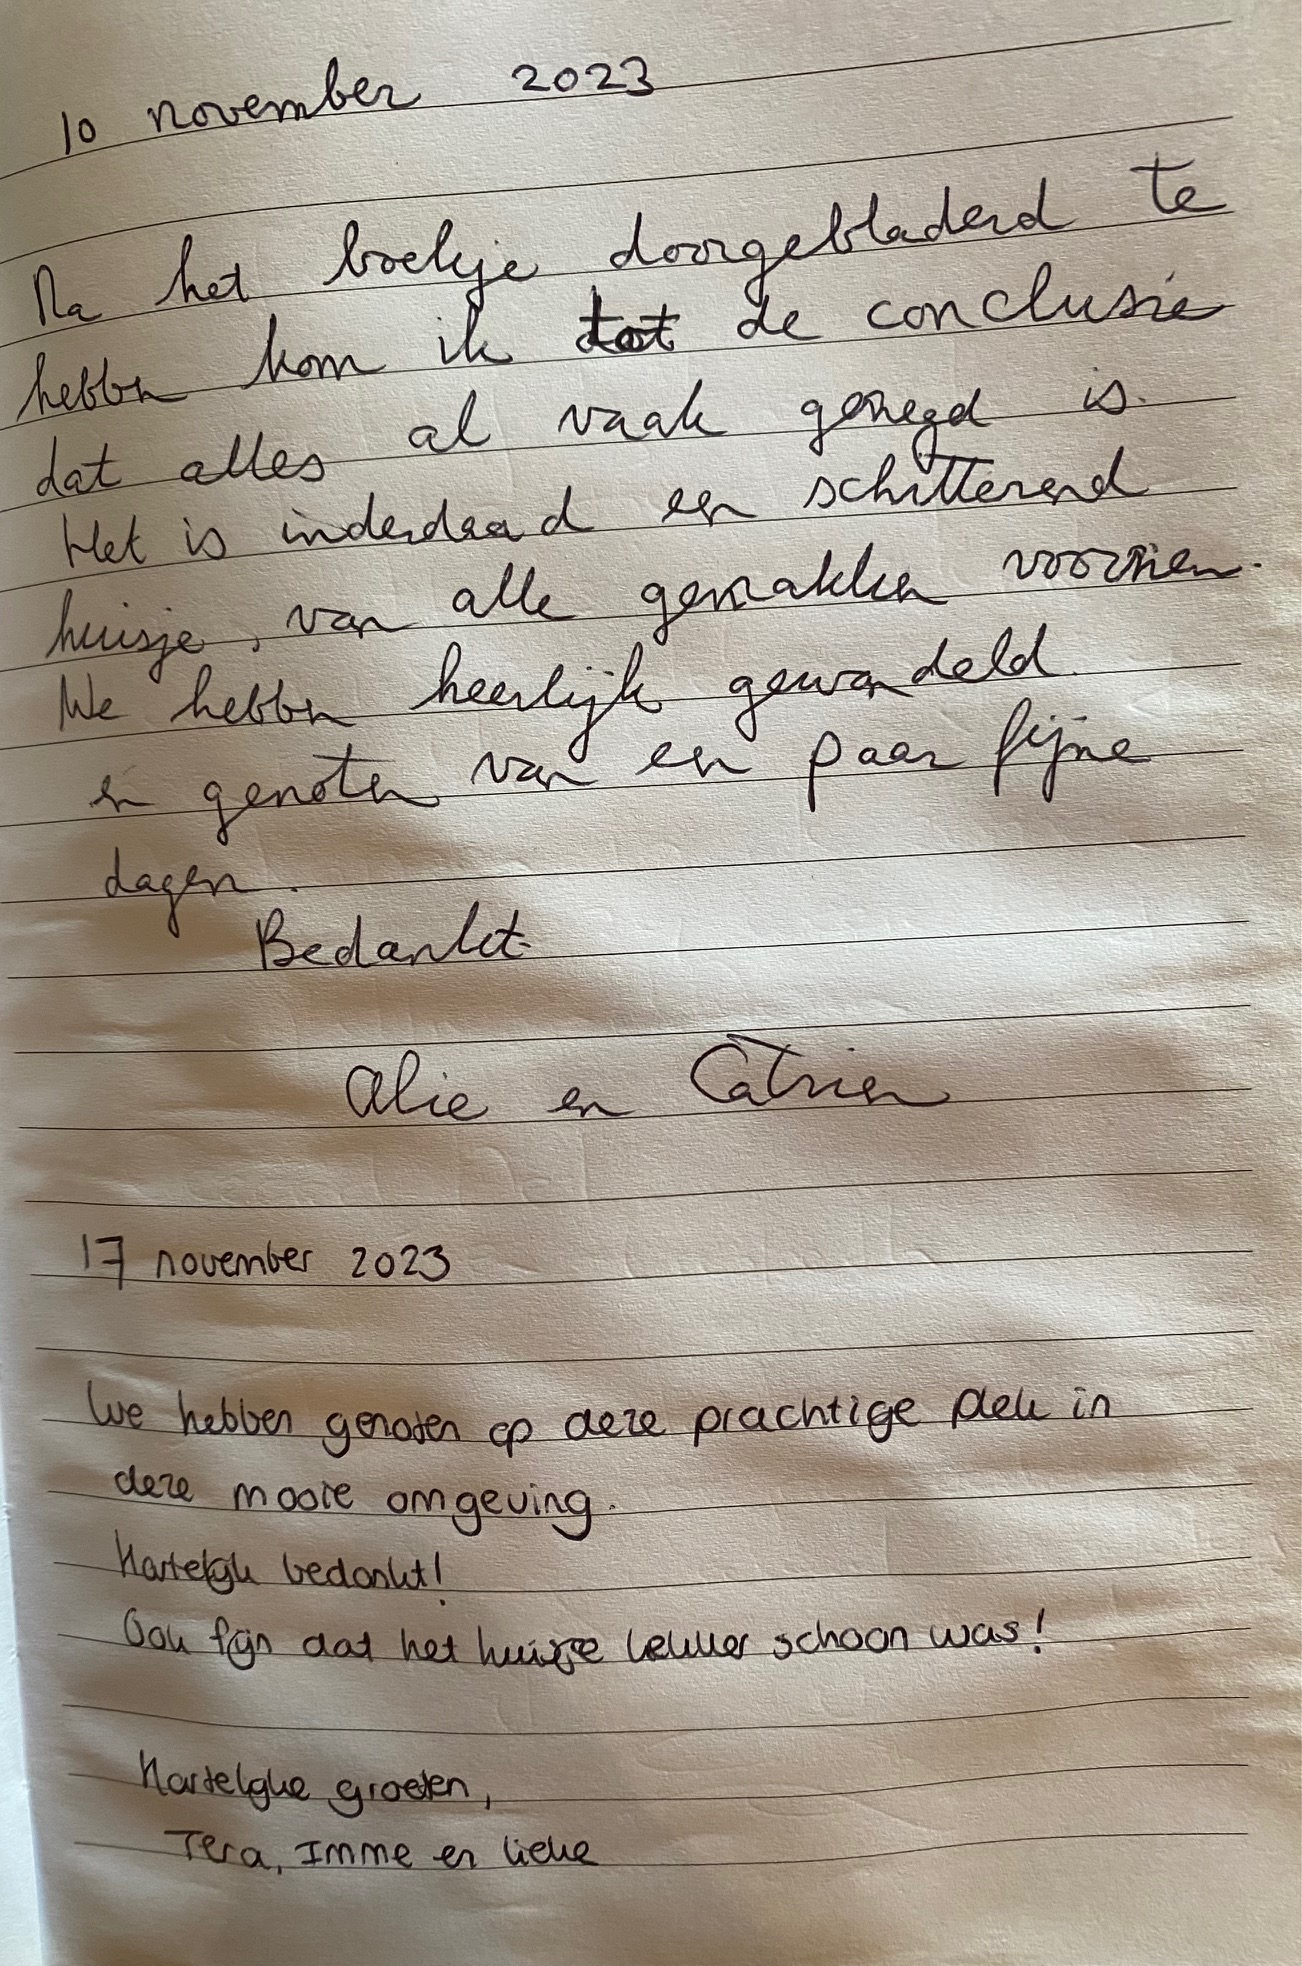 10 november 2023
Na het boekje doorgebladerd te
hebben kom ik tot de conclusie
dat alles al vaak gezegd is.
Het is inderdaad een schitterend
huisje, van alle gemakken voorzien.
We hebben heerlijk gewandeld
en genoten van een paar fijne
dagen.
Bedankt
Alie en Catrien
17 november 2023
We hebben genoten op deze prachtige plek in
deze mooie omgeving.
Hartelijk bedankt!
Ook fijn dat het huisje lekker schoon was!
Hartelijke groeten,
Tera, Imme en Lieke